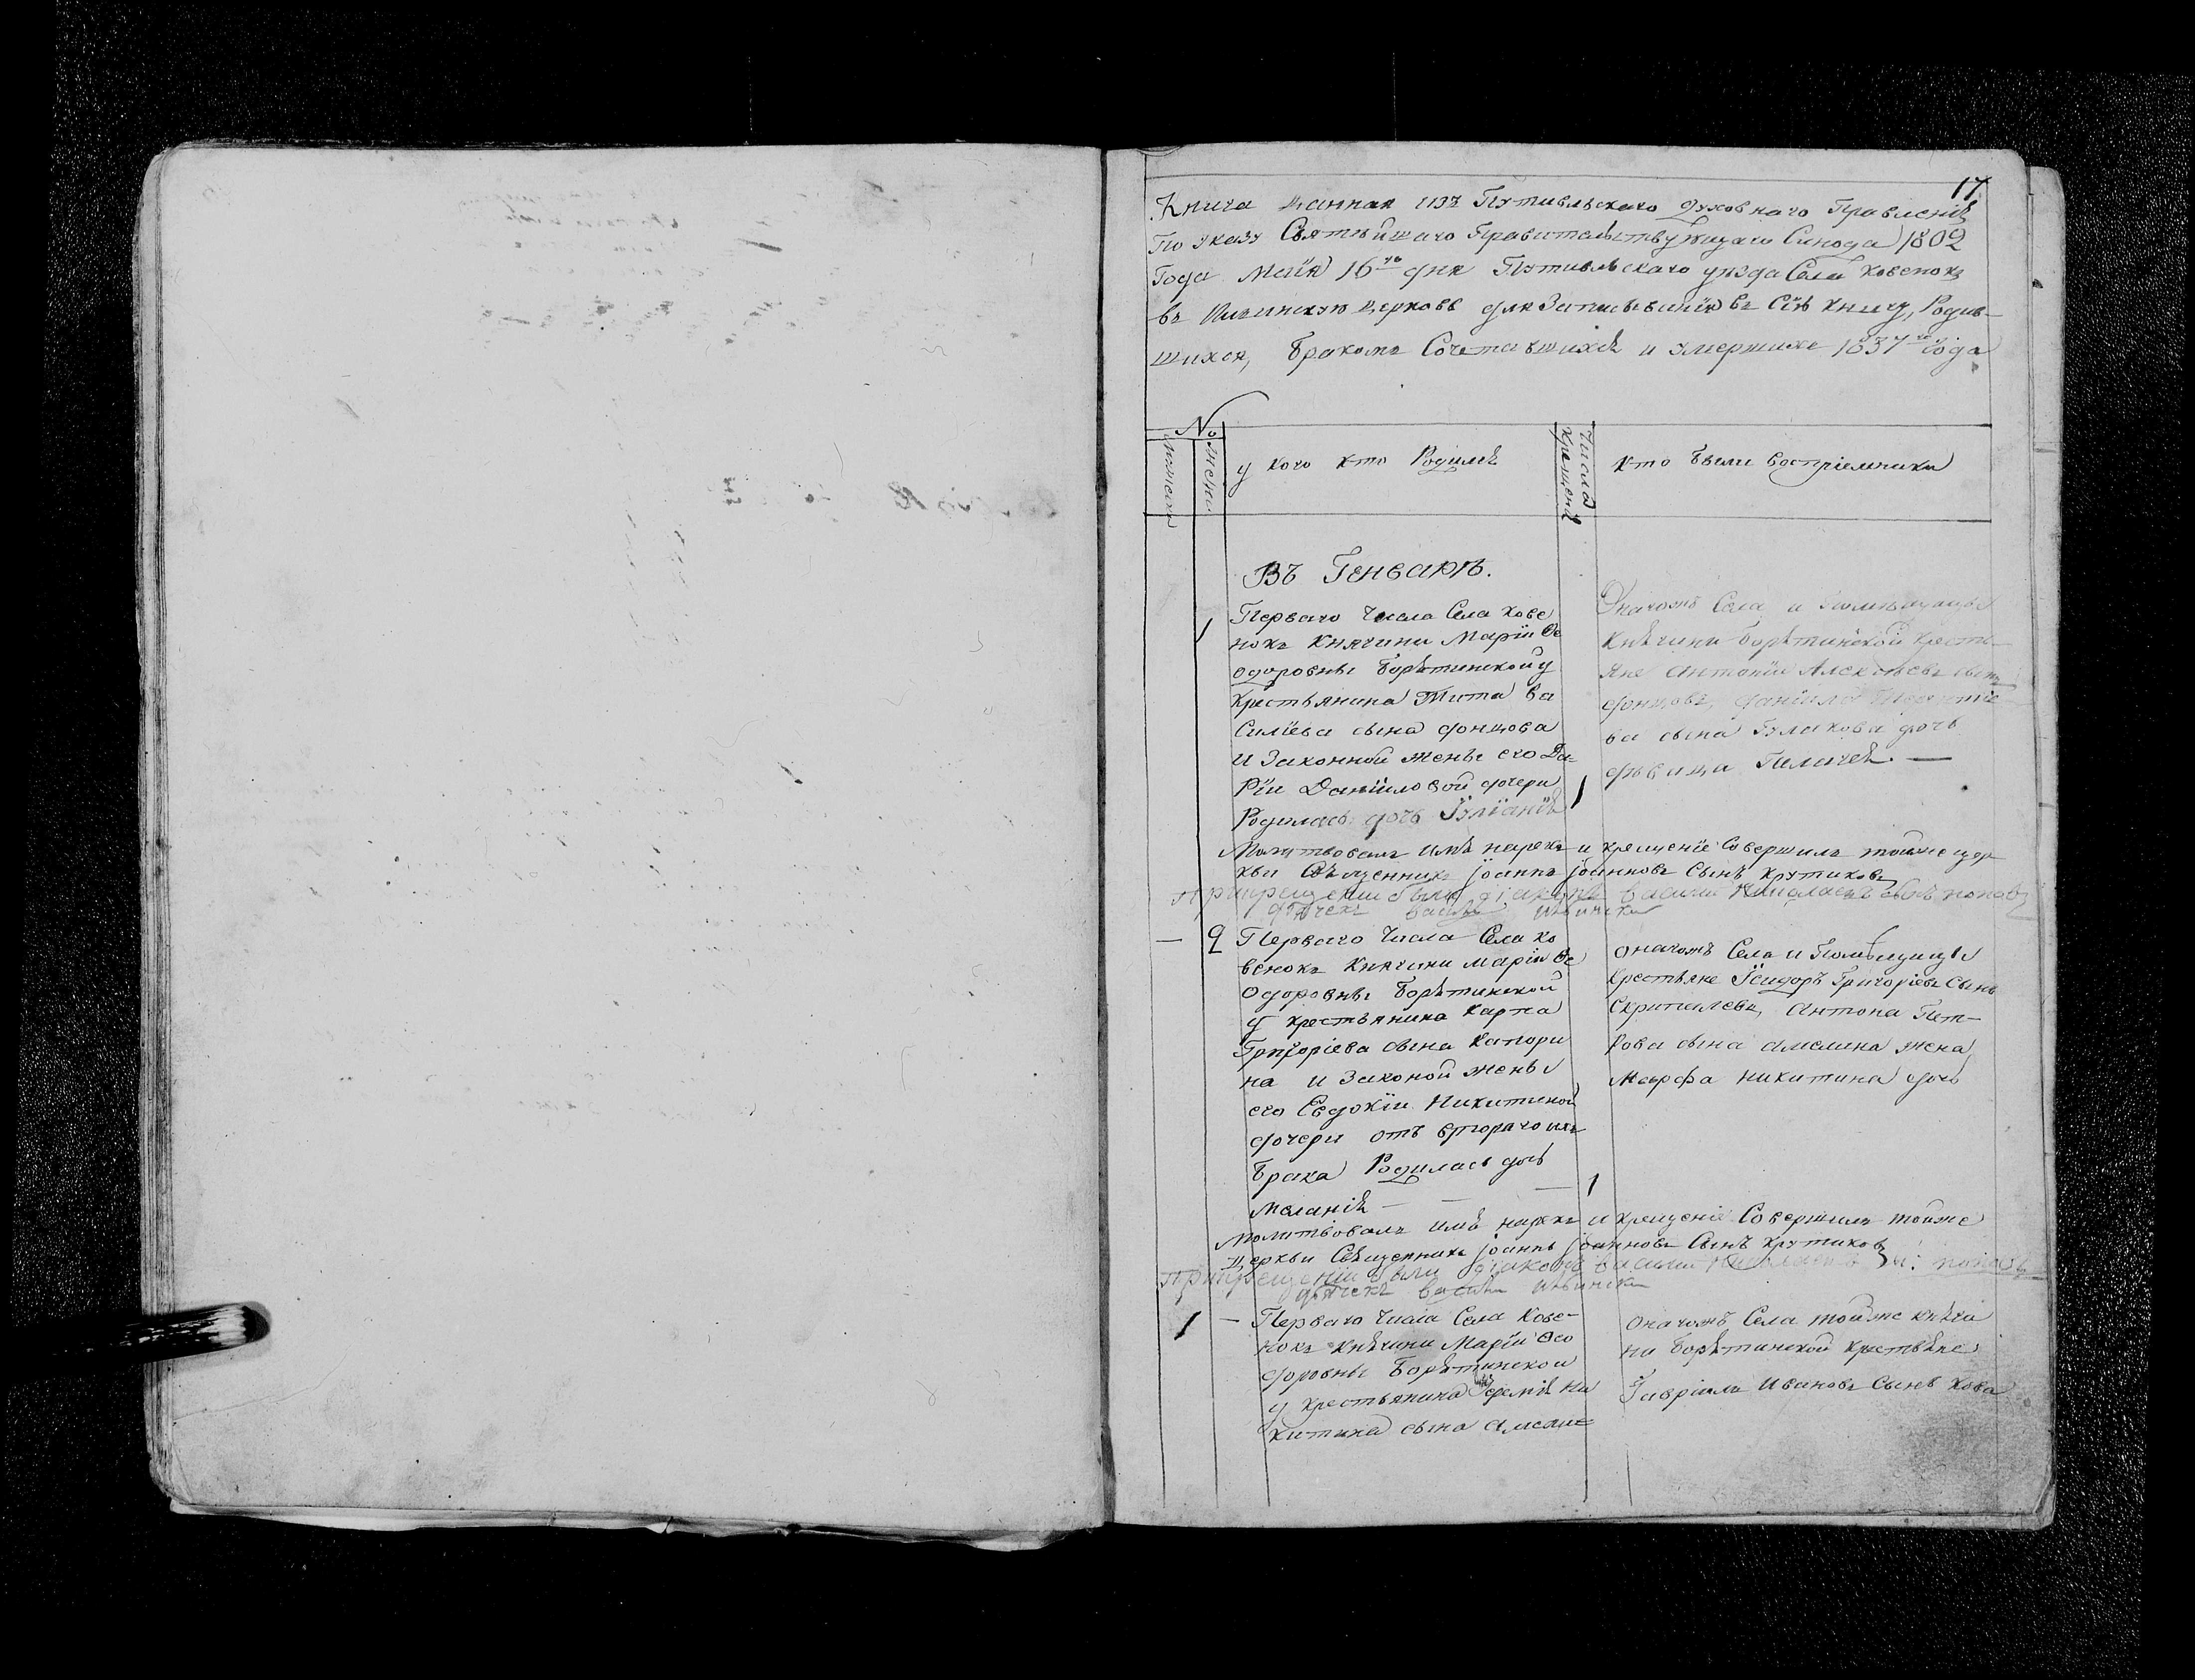 17
Книга данная изъ Путивльскаго Духовнаго Правленія
По указу Святѣйшаго Правительствующаго Синода 1802
Года Маія 16го дня Путивльскаго уѣзда Села Ховенокъ
въ церковь для Записыванія въ Сію книгу, Родив-
шихся, Бракомъ Сочетавшихся и умершихъ 1837го года
№
мужеска
женс.
у кого кто Родился
Число крещенія
кто были воспріемники
Въ Генварѣ.
1
Перваго числа Села Хове
нокъ Княгини Маріи Ѳе
одоровны Борятинской у
Крестьянина Тита Ва
силіева сына фонцова
и Законной жены его Да-
ріи Даніиловой дочери
Родилась дочь Іуліанія
1
Онагожъ Села и Помѣщицы
Княгини Борятинской крестья-
яне Антоній Алексѣевъ сынъ
фонцовъ, Даніила
ва сына Гулакова дочь
дѣвица Пелагея. —
Молитвовалъ имя нарекъ и крещеніе Совершилъ тойже цер
кви Священникъ Іоаннъ Іоанновъ Сынъ Крутиковъ
При крещеніи были діаконъ Василій Николаевъ сынъ поповъ
дьячекъ Василій
—
2
Перваго Числа Села Хо
венокъ Княгини Маріи Ѳе
одоровны Борятинской
у крестьянина Карпа
Григоріева сына Капори
на и Законой жены
его Евдокіи Никитиной
дочери отъ втораго ихъ
брака Родилась дочь
Меланія — —
1
Онагожъ Села и Помѣщицы
крестьяне Ісидоръ Григоріевъ Сынъ
Скрипилевъ, Антона Пет-
рова сына Амелина жена
Марфа Никитина дочь
Молитвовалъ имя нарекъ и крещеніе Совершилъ тойже
Церкви Священникъ Іоаннъ Іоанновъ Сынъ Крутиковъ
При крещеніи были діаконъ Василій Николаевъ поповъ
дьячекъ Василій
1
—
Перваго Числа Села Хове-
нокъ Княгини Маріи Ѳео
доровны Борятинской
у крестьянина Іереміи Ни
китина сына Амели-
Онагожъ Села тойже княги
ни Борятинской крестьяне
Гавріилъ Ивановъ Сынъ Кова